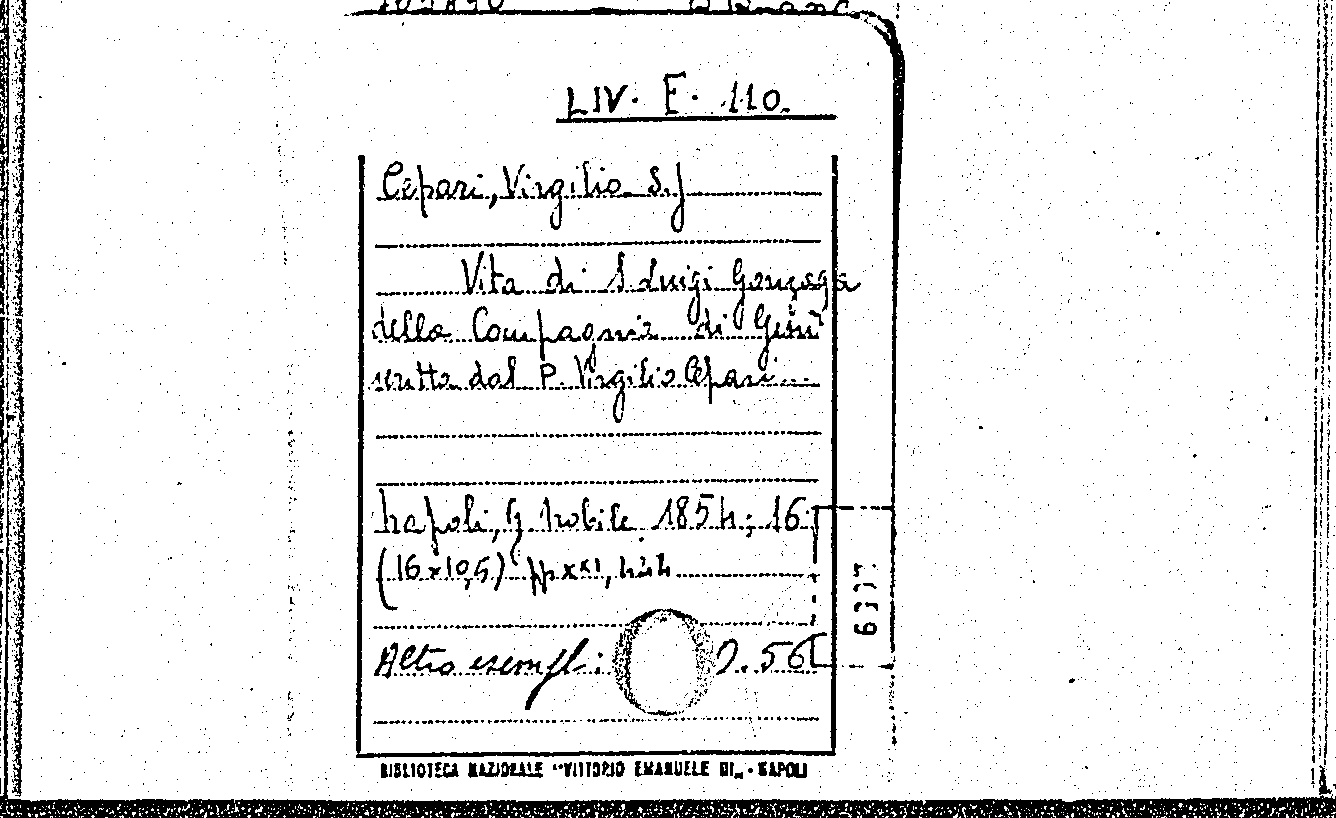 LIV. E. 110.
Cepari, Virgilio S.J
Vita di S. Luigi Gonzaga
della Compagnia di Gesù
scritta dal P. Virgilio Cepari...
Napoli, G. Nobile 1854; 16
(16x10,5) pp xxi, 424
Altro esempl:
BIBLIOTECA NAZIONALE "VITTORIO EMANUELE III" - NAPOLI